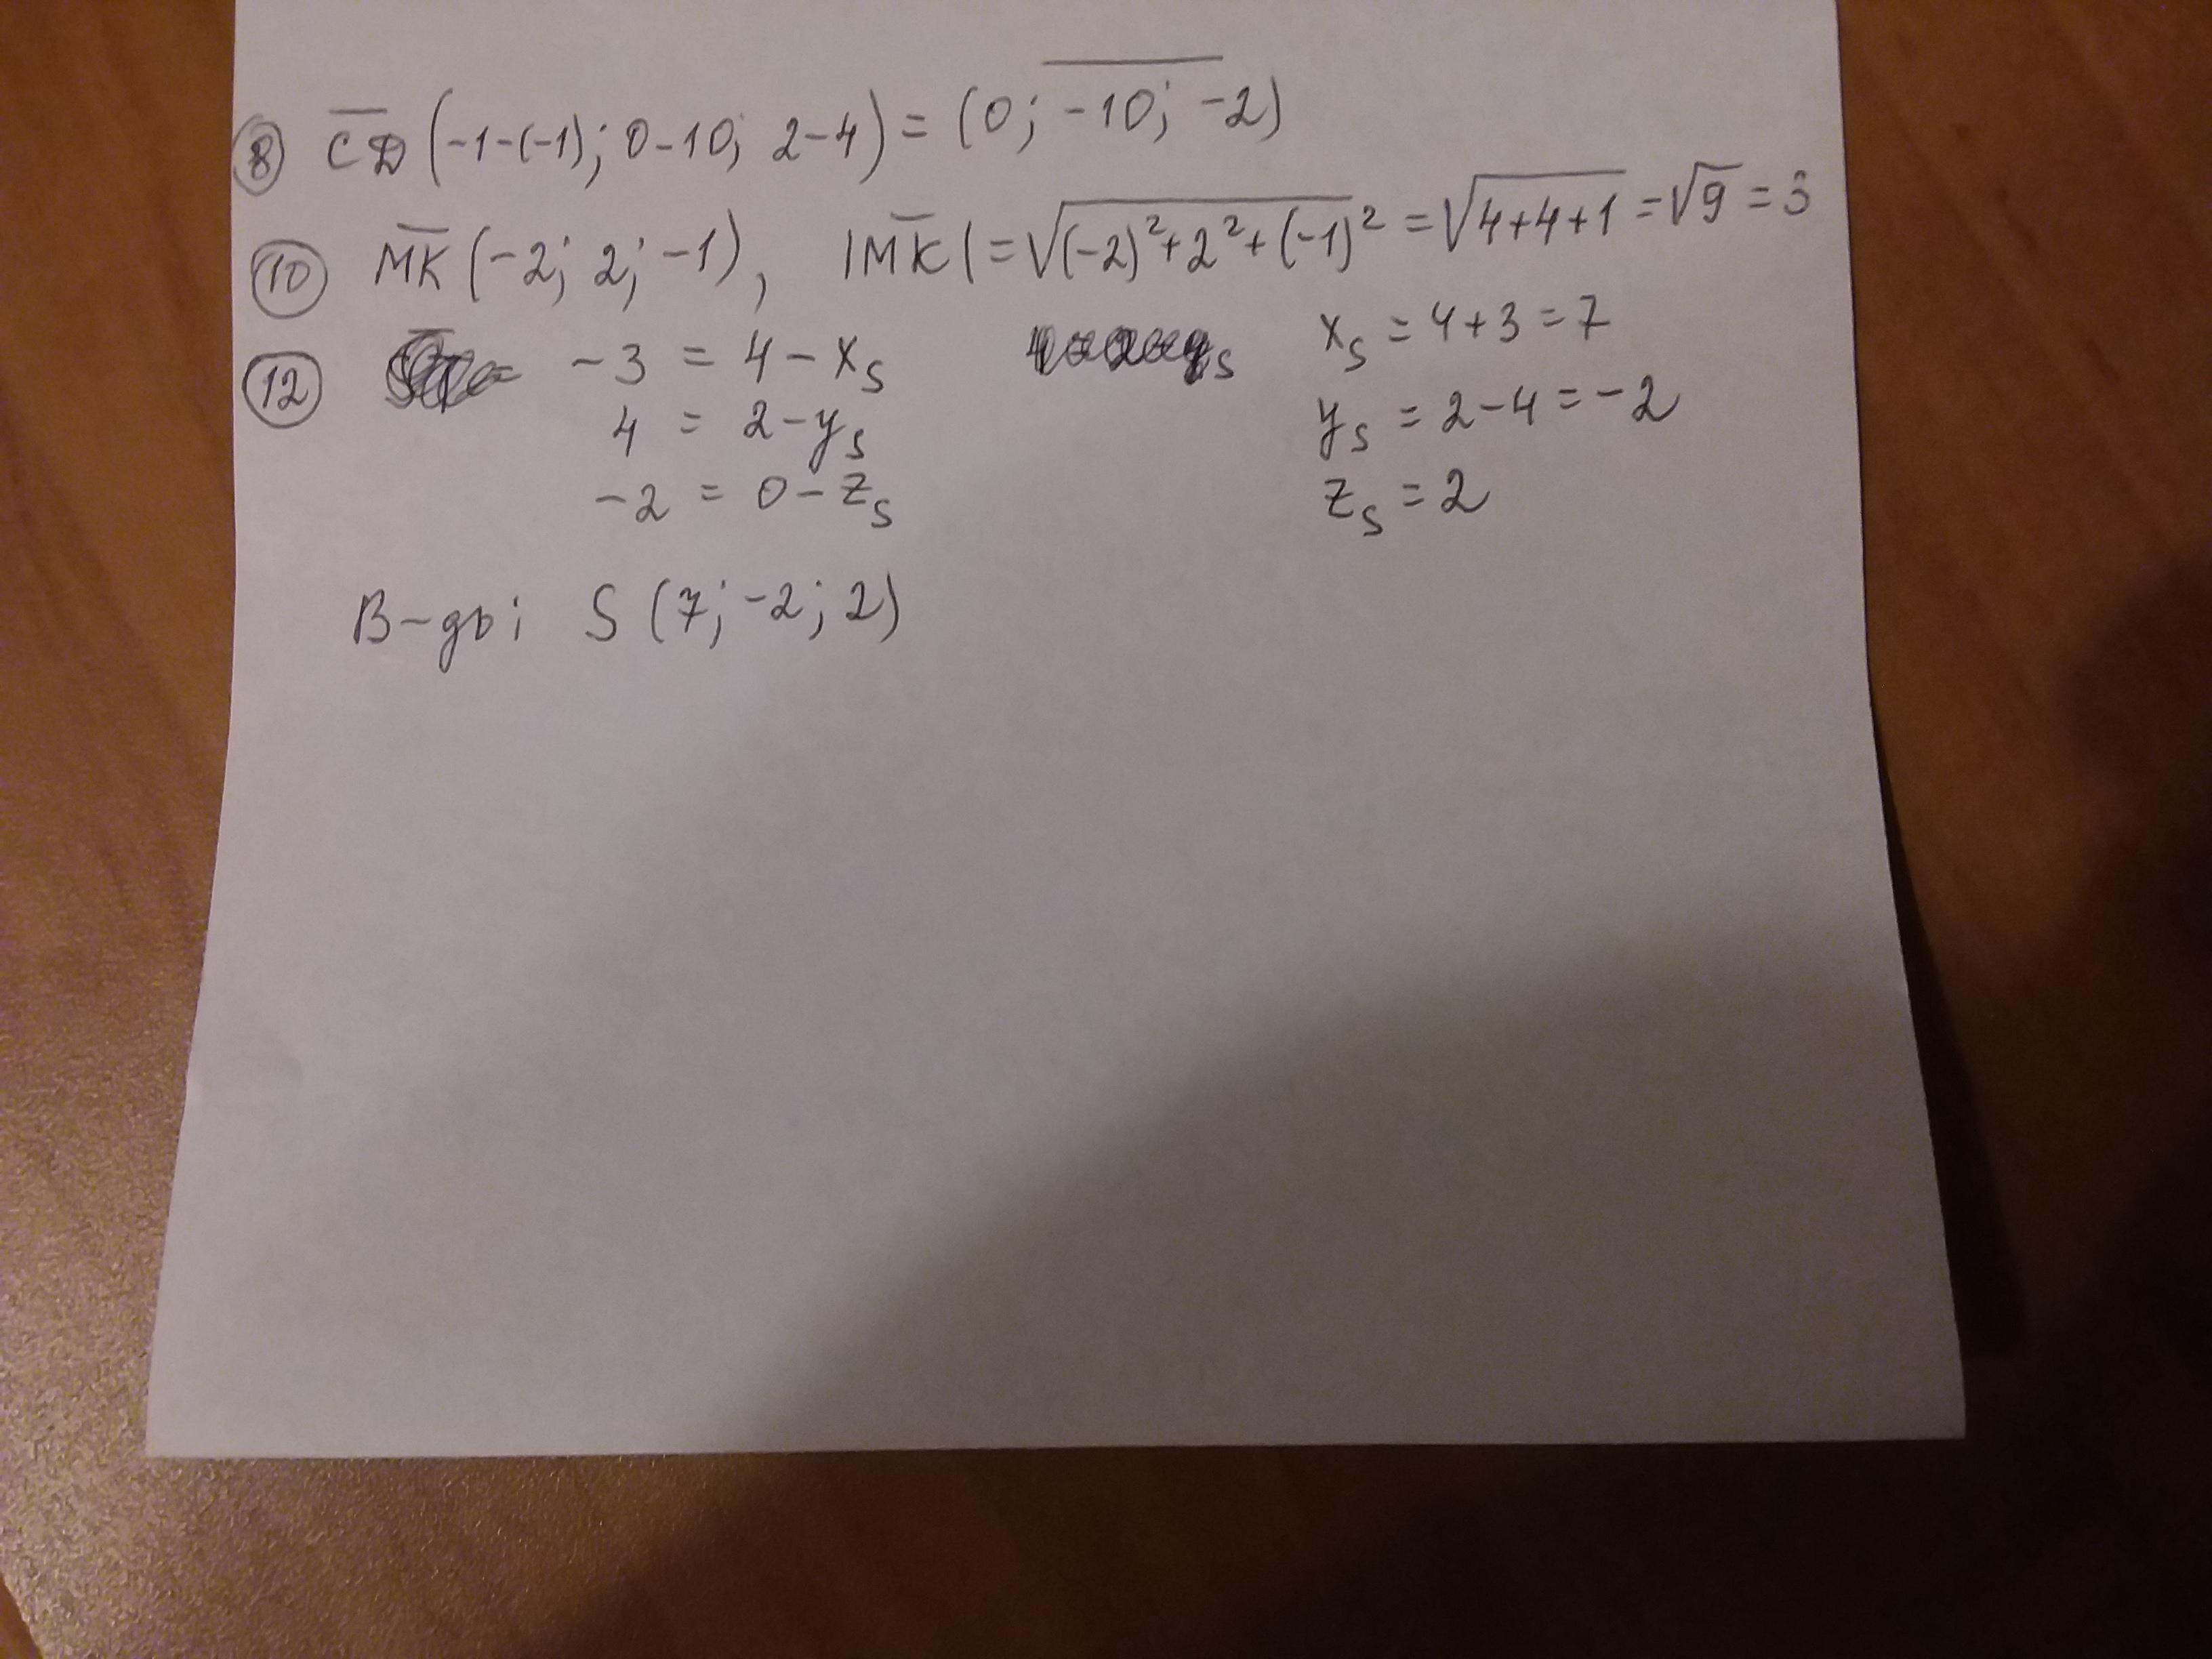 8 C̅D̅ (-1-(-1); 0-10; 2-4) = (0; -10; -2)
10 M̅K̅ (-2; 2; -1), |M̅K̅| = √((-2)²+2²+(-1)²) = √(4+4+1) = √9 = 3
12 -3 = 4 - x_S x_S = 4+3 = 7
4 = 2 - y_S y_S = 2-4 = -2
-2 = 0 - z_S z_S = 2
В-дь: S (7; -2; 2)